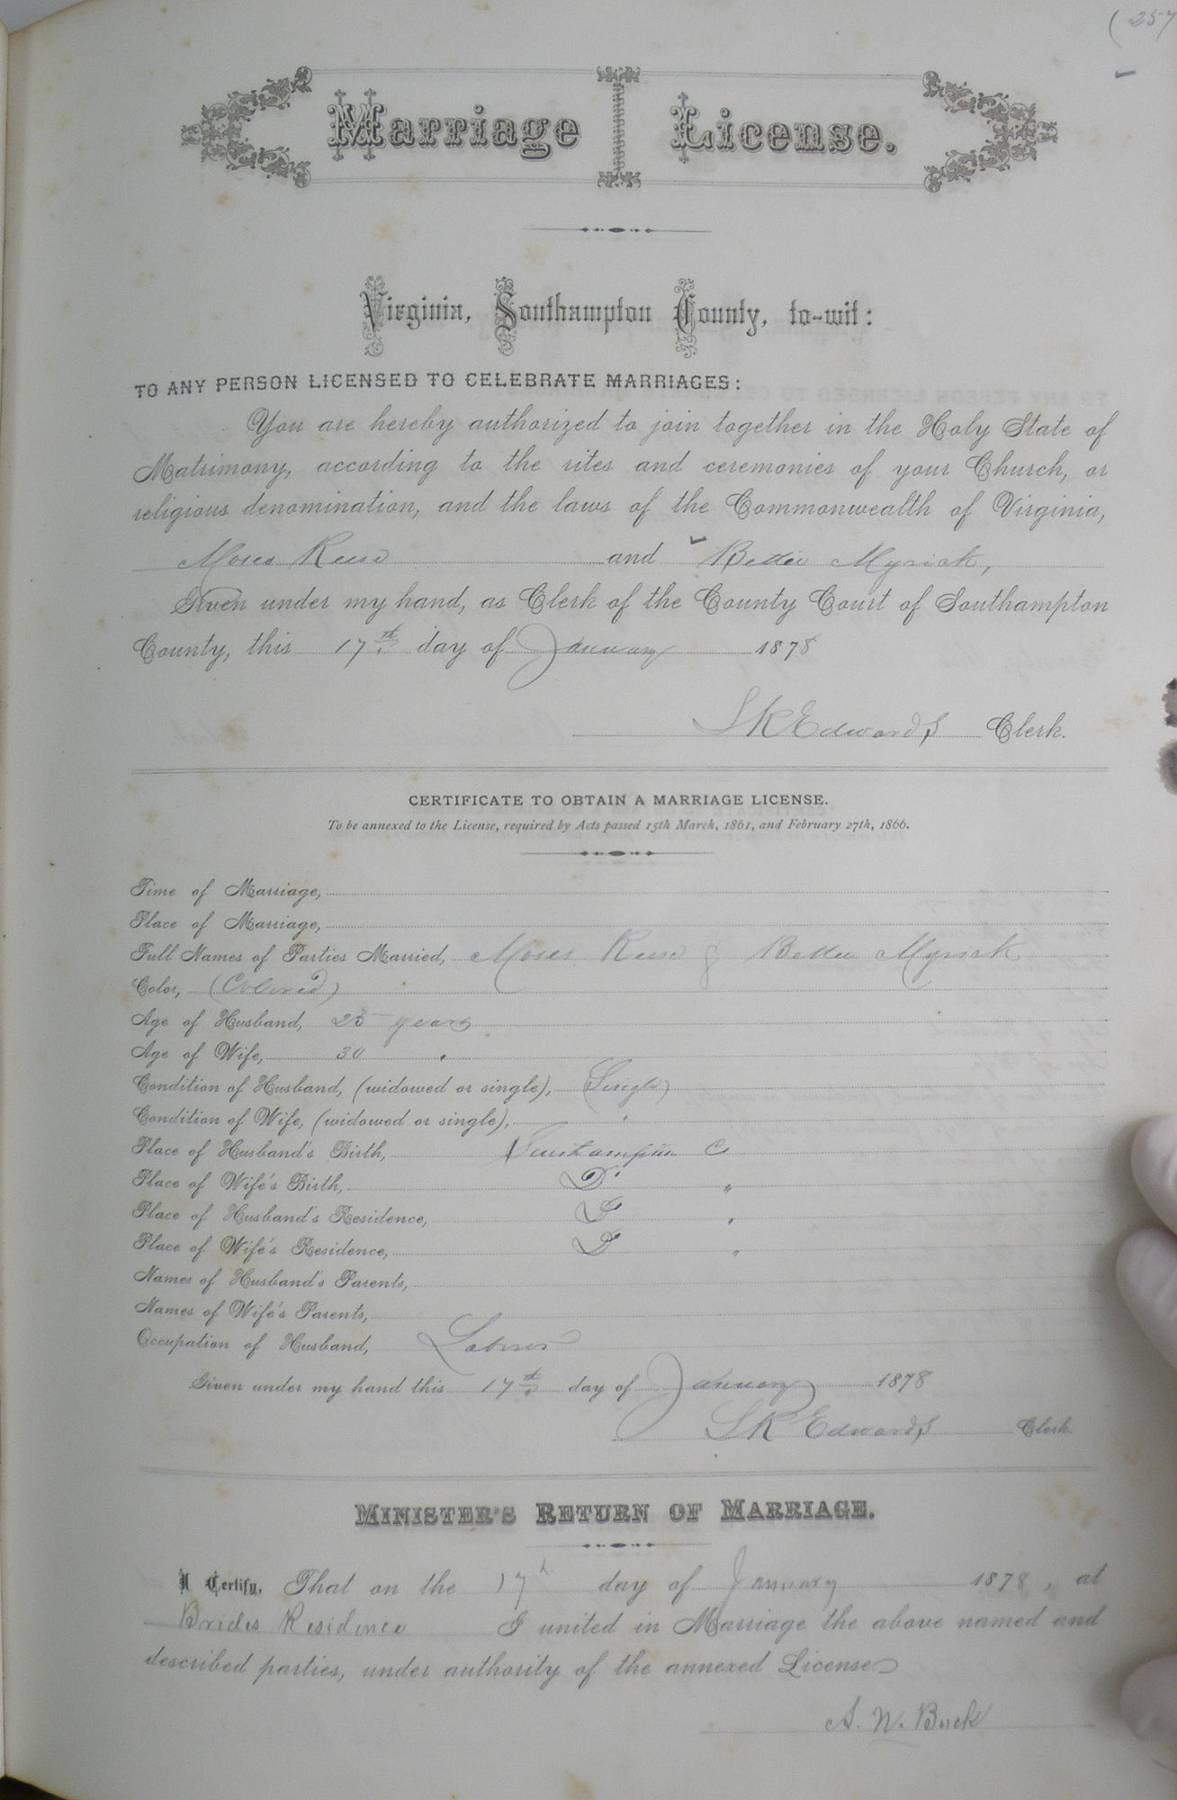 (257
Marriage License.
Virginia, Southampton County, to-wit:
TO ANY PERSON LICENSED TO CELEBRATE MARRIAGES:
You are hereby authorized to join together in the Holy State of
Matrimony, according to the rites and ceremonies of your Church, or
religious denomination, and the laws of the Commonwealth of Virginia,
Moses Reese and Bettie Myrick,
Given under my hand, as Clerk of the County Court of Southampton
County, this 17th day of January 1878
L R Edwards Clerk.
CERTIFICATE TO OBTAIN A MARRIAGE LICENSE.
To be annexed to the License, required by Acts passed 15th March, 1861, and February 27th, 1866.
Time of Marriage,
Place of Marriage,
Full Names of Parties Married, Moses Reese & Bettie Myrick
Color, (Colored)
Age of Husband, 25 years
Age of Wife, 30 "
Condition of Husband, (widowed or single), Single
Condition of Wife, (widowed or single), "
Place of Husband's Birth, Southampton Co
Place of Wife's Birth, Do "
Place of Husband's Residence, Do "
Place of Wife's Residence, Do "
Names of Husband's Parents,
Names of Wife's Parents,
Occupation of Husband, Laborer
Given under my hand this 17th day of January 1878
L R Edwards Clerk.
MINISTER'S RETURN OF MARRIAGE.
I Certify, That on the 17th day of January 1878, at
Brides Residence I united in Marriage the above named and
described parties, under authority of the annexed License
A. W. Buck